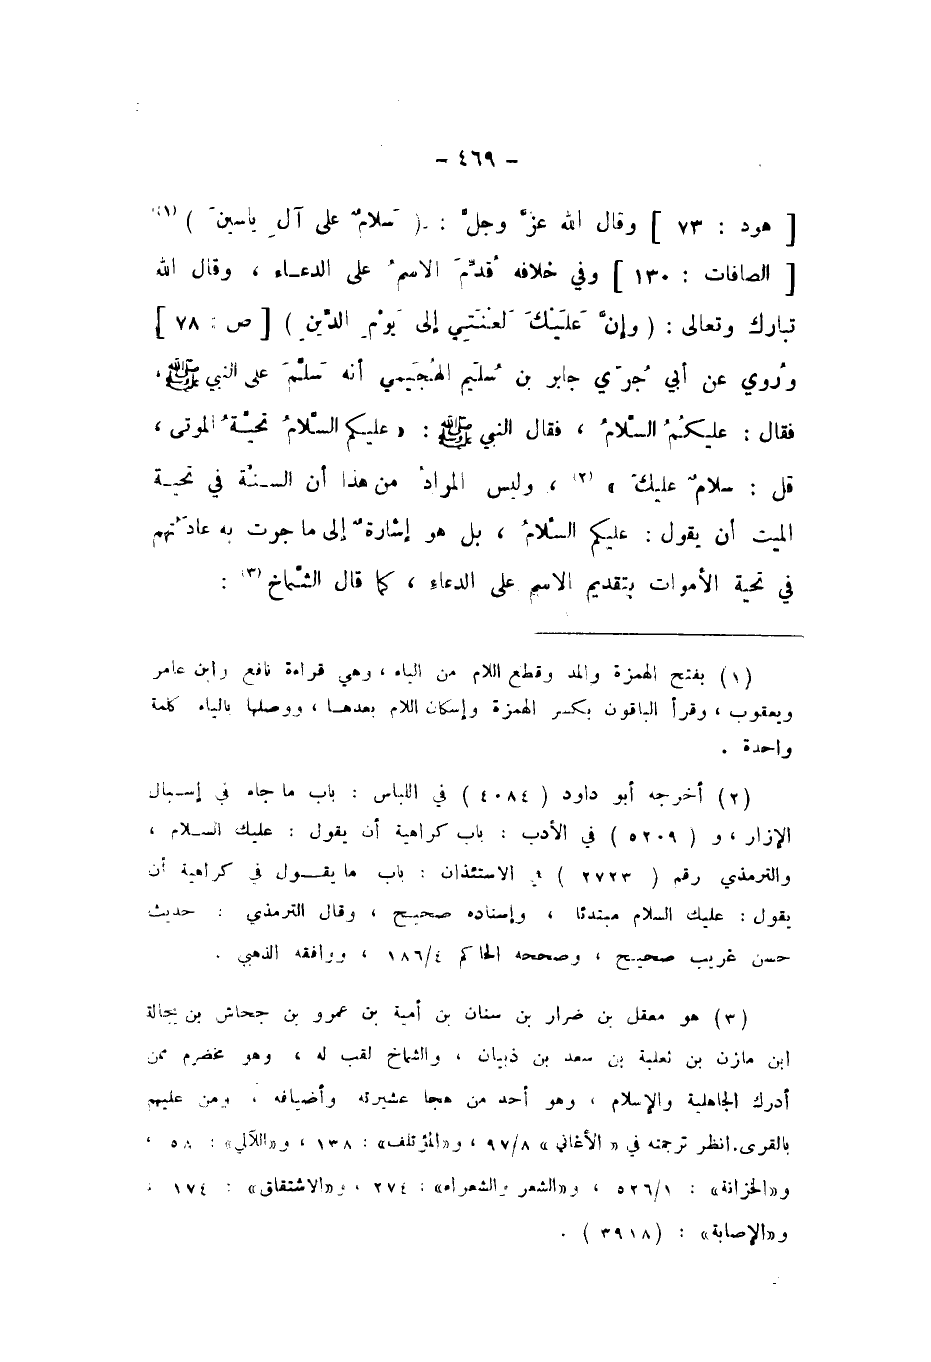 - ٤٦٩ -
[ هود : ٧٣ ] وقال الله عزَّ وجلَّ : ( سَلامٌ على آلِ ياسينَ ) (١)
[ الصافات : ١٣٠ ] وفي خلافه قُدِّمَ الاسمُ على الدعاء ، وقال الله
تبارك وتعالى : ( وإنَّ عَلَيْكَ لَعْنَتِي إلى يَوْمِ الدِّينِ ) [ ص : ٧٨ ]
ورُوي عن أبي جُرَي جابر بن سُليَم الهُجَيمي أنه سَلَّمَ على النبي ﷺ ،
فقال : عليكمُ السَّلامُ ، فقال النبي ﷺ : « عليكم السَّلامُ تحيَّةُ الموتى ،
قل : سلامٌ عليكَ » (٢) ، وليس المرادُ من هذا أن السنَّة في تحية
الميت أن يقول : عليكم السَّلامُ ، بل هو إشارةٌ إلى ما جرت به عادَتُهم
في تحية الأموات بتقديم الاسم على الدعاء ، كما قال الشَّماخ (٣) :
(١) بفتح الهمزة والمد وقطع اللام من الياء ، وهي قراءة نافع وابن عامر
ويعقوب ، وقرأ الباقون بكسر الهمزة وإسكان اللام بعدها ، ووصلها بالياء كلمة
واحدة .
(٢) أخرجه أبو داود ( ٤٠٨٤ ) في اللباس : باب ما جاء في إسبال
الإزار ، و ( ٥٢٠٩ ) في الأدب : باب كراهية أن يقول : عليك السلام ،
والترمذي رقم ( ٢٧٢٣ ) في الاستئذان : باب ما يقول في كراهية أن
يقول : عليك السلام مبتدئا ، وإسناده صحيح ، وقال الترمذي : حديث
حسن غريب صحيح ، وصححه الحاكم ١٨٦/٤ ، ووافقه الذهبي .
(٣) هو معقل بن ضرار بن سنان بن أمية بن عمرو بن جحاش بن بجالة
ابن مازن بن ثعلبة بن سعد بن ذبيان ، والشماخ لقب له ، وهو مخضرم ممن
أدرك الجاهلية والإسلام ، وهو أحد من هجا عشيرته وأضيافه ، ومن عليهم
بالقرى. انظر ترجمته في « الأغاني » ٩٧/٨ ، و«المؤتلف» : ١٣٨ ، و«اللآلي» : ٥٨ ،
و«الخزانة» : ٥٢٦/١ ، و«الشعر والشعراء» : ٢٧٤ ، و«الاشتقاق» : ١٧٤ ،
و«الإصابة» : ( ٣٩١٨ ) .